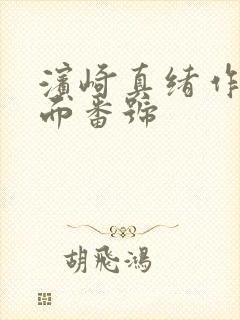 濱崎真緒作
而番號
胡飛鴻